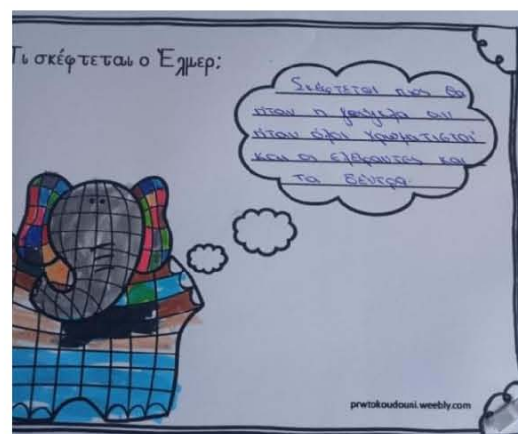 Τι σκέφτεται ο Έλμερ;
Σκέφτεται πως θα
ήταν η ζούγκλα αν
ήταν όλοι χρωματιστοί
και οι ελέφαντες και
τα δέντρα.
prwtokoudouni.weebly.com